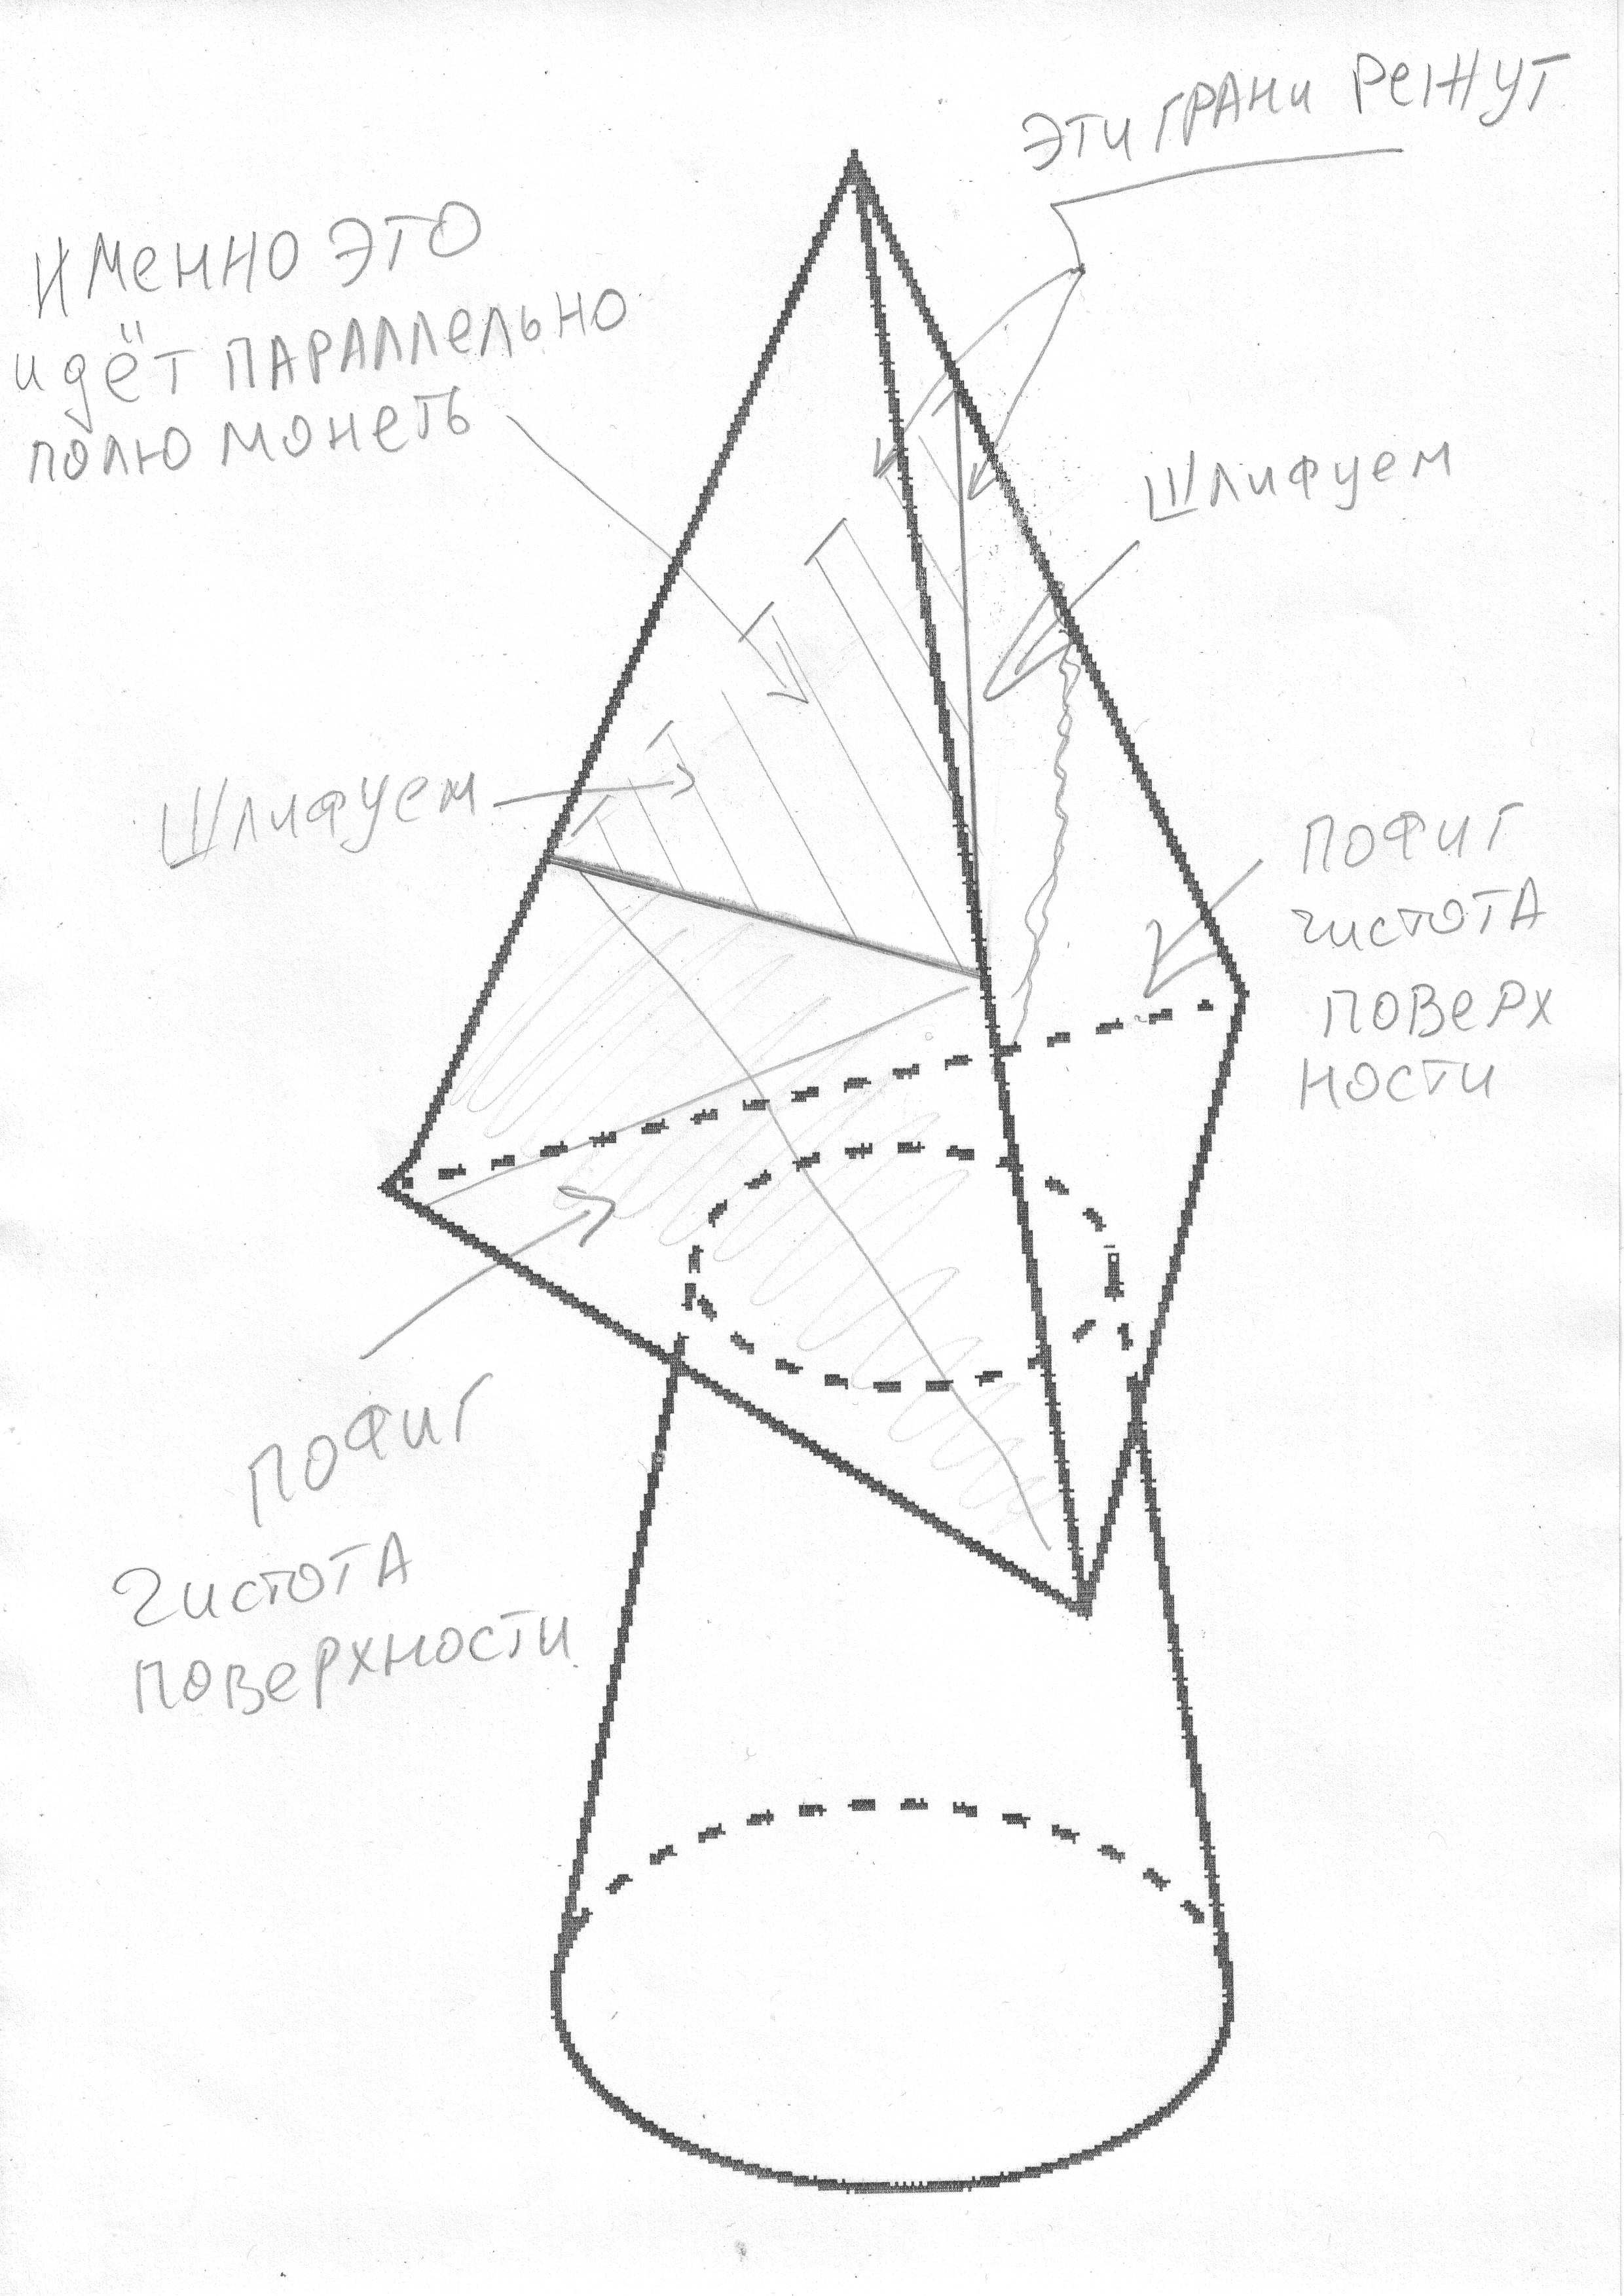 ЭТИ ГРАНИ РЕЖУТ
ИМЕННО ЭТО
идёт ПАРАЛЛЕЛЬНО
ПОЛЮ МОНЕТЬ
ШЛИФУЕМ
ШЛИФУЕМ
ПОФИГ
ЧИСТОТА
ПОВЕРХ
НОСТИ
ПОФИГ
ЧИСТОТА
ПОВЕРХНОСТИ